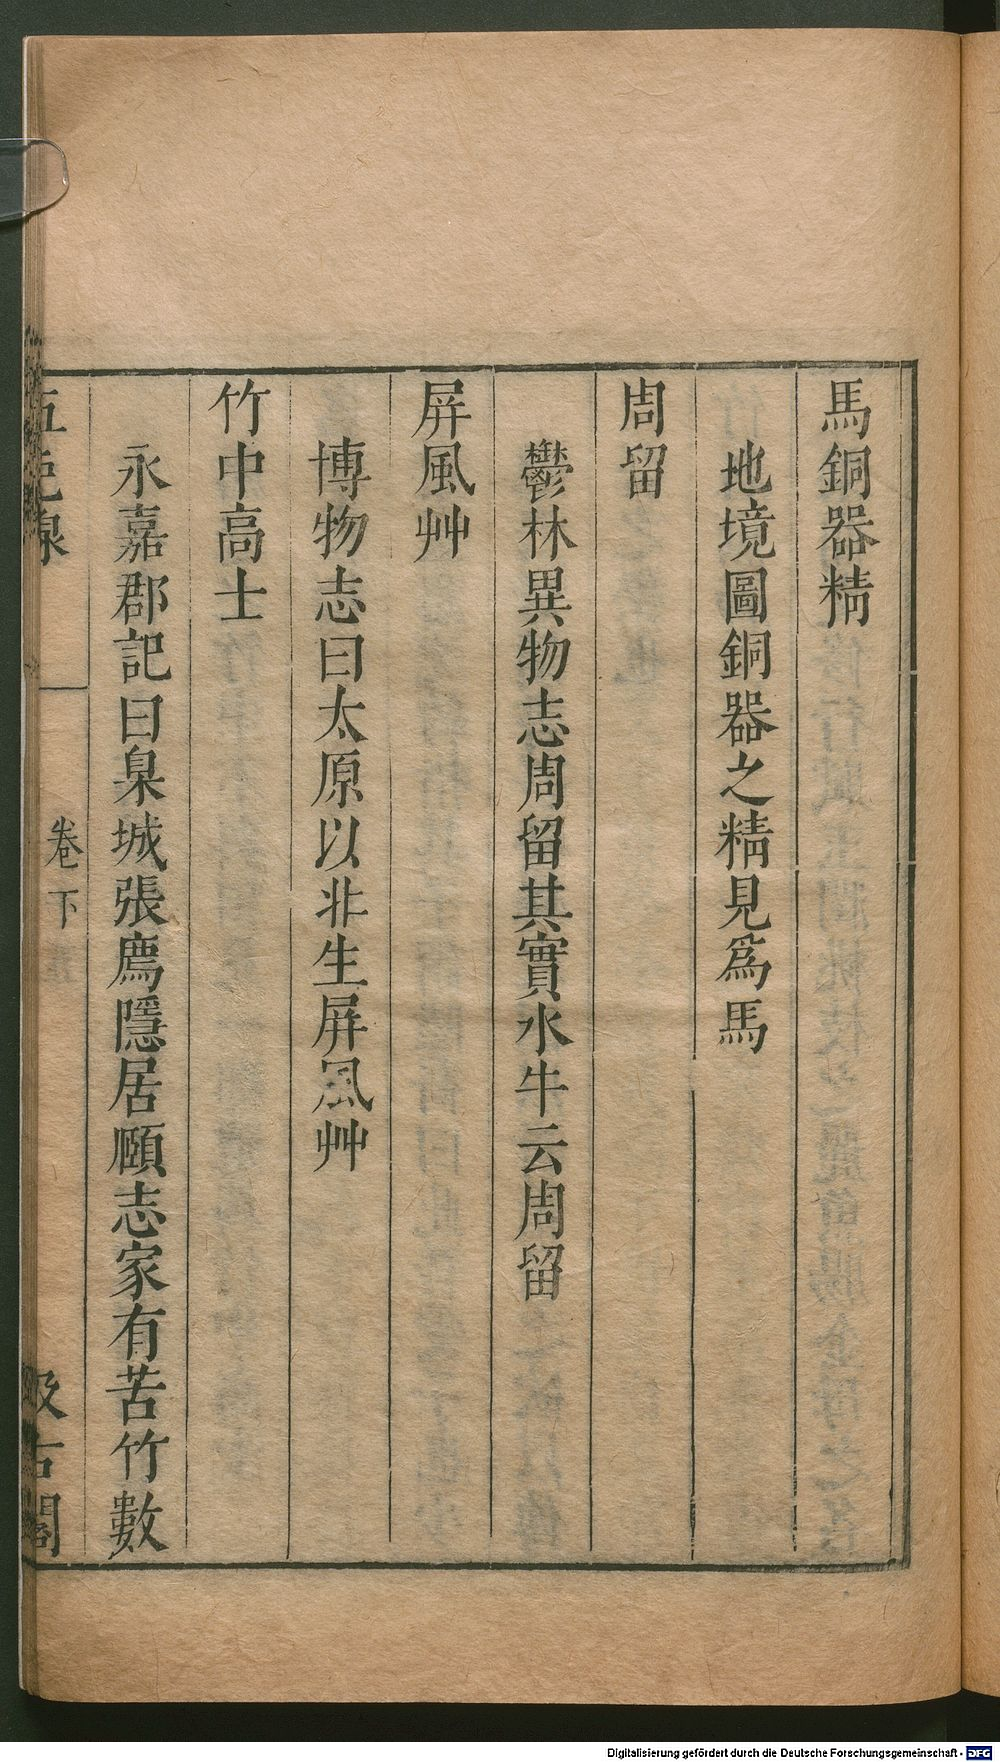 馬銅器精
地境圖銅器之精見爲馬
周留
鬱林異物志周留其實水牛云周留
屏風艸
博物志曰太原以北生屏風艸
竹中高士
永嘉郡記曰泉城張廌隱居頤志家有苦竹數
五色線
卷下
汲古閣
Digitalisierung gefördert durch die Deutsche Forschungsgemeinschaft - DFG